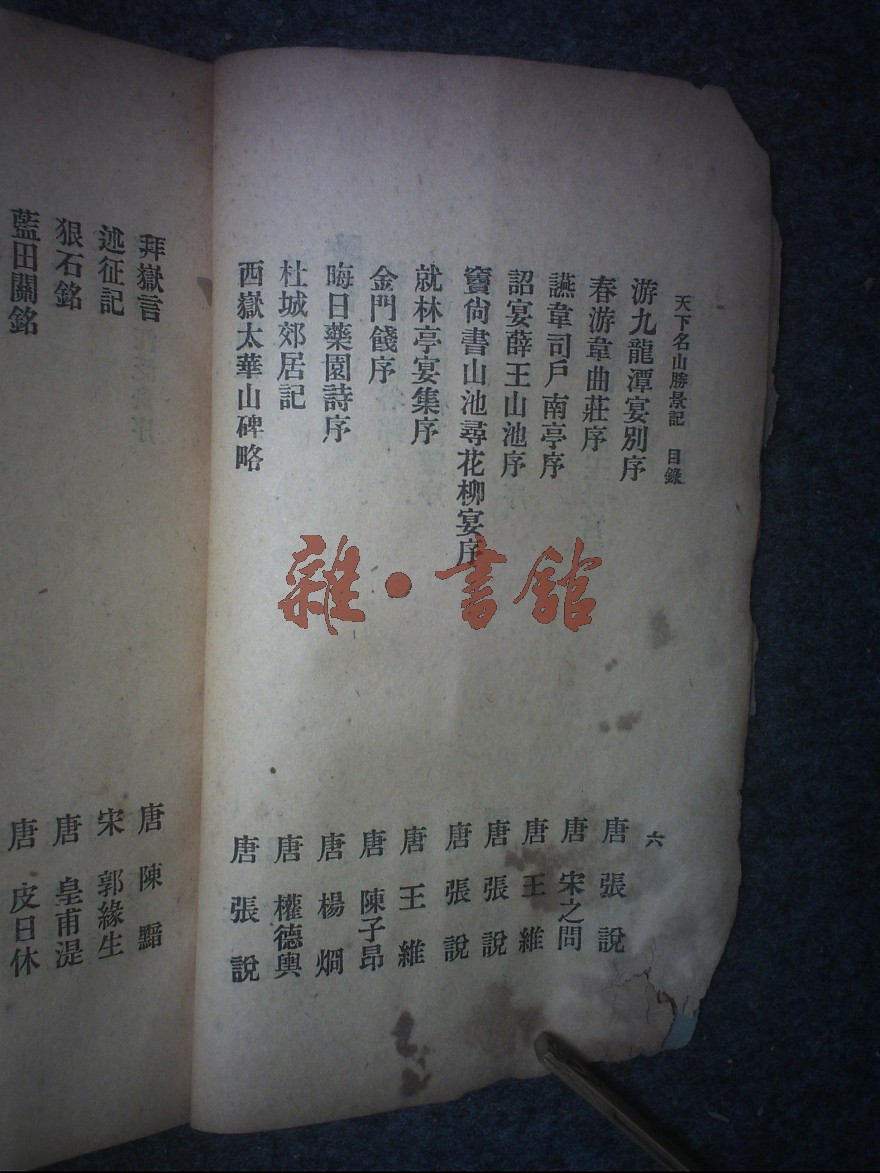 天下名山勝景記 目錄 六
游九龍潭宴別序 唐 張說
春游韋曲莊序 唐 宋之問
讌韋司戶南亭序 唐 王維
詔宴薛王山池序 唐 張說
竇尙書山池尋花柳宴序 唐 張說
就林亭宴集序 唐 王維
金門餞序 唐 陳子昂
晦日藥園詩序 唐 楊烱
杜城郊居記 唐 權德輿
西嶽太華山碑略 唐 張說
拜嶽言 唐 陳黯
述征記 宋 郭緣生
狠石銘 唐 皇甫湜
藍田關銘 唐 皮日休
雜·書館